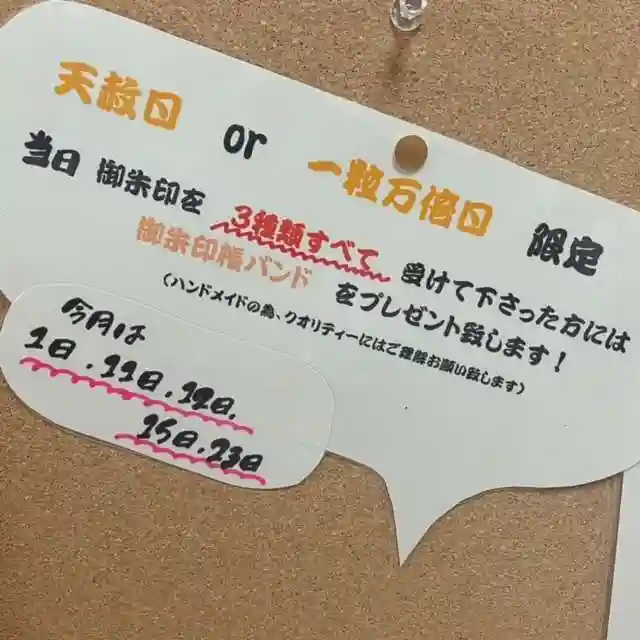 天赦日 or 一粒万倍日 限定
当日 御朱印を 3種類すべて 受けて下さった方には
御朱印帳バンド をプレゼント致します!
(ハンドメイドの為、クオリティーにはご理解お願い致します)
今月は
1日、11日、12日、
15日、23日